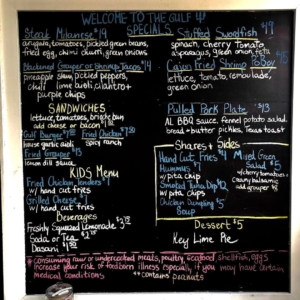 WELCOME TO THE GULF
SPECIALS
Steak Milanese $14
arugula, tomatoes, pickled green beans,
fried egg, chimi churri, green onions
Blackened Grouper or Shrimp Tacos $14
pineapple slaw, pickled peppers,
chili lime aioli, cilantro +
purple chips
SANDWICHES
lettuce, tomatoes, bright bun
add cheese or bacon
Gulf Burger
house garlic aioli
Fried Chicken
spicy ranch
Fried Grouper $13
lemon dill sauce
KIDS Menu
Fried Chicken Tenders $7
w/ hand cut fries
Grilled Cheese
w/ hand cut fries
Beverages
Freshly Squeezed Lemonade
Soda or Tea
Dasani
Stuffed Swordfish $19
spinach, cherry tomato,
asparagus, green onion, feta
Cajun Fried Shrimp PoBoy
lettuce, tomato, remoulade,
green onion
Pulled Pork Plate $13
AL BBQ sauce, Fennel potato salad,
bread + butter pickles, Texas toast
Shares + Sides
Hand Cut Fries $4
Hummus $7
w/ pita chip
Smoked Tuna Dip
w/ pita chips
Chicken Dumpling $5
Soup
Mixed Green
Salad $5
w/ cherry tomatoes +
creamy balsamic
add grouper $8
Dessert $5
Key Lime Pie
* consuming raw or undercooked meats, poultry, seafood, shellfish, eggs
increase your risk of foodborn illness especially if you may have certain
medical conditions ** contains peanuts